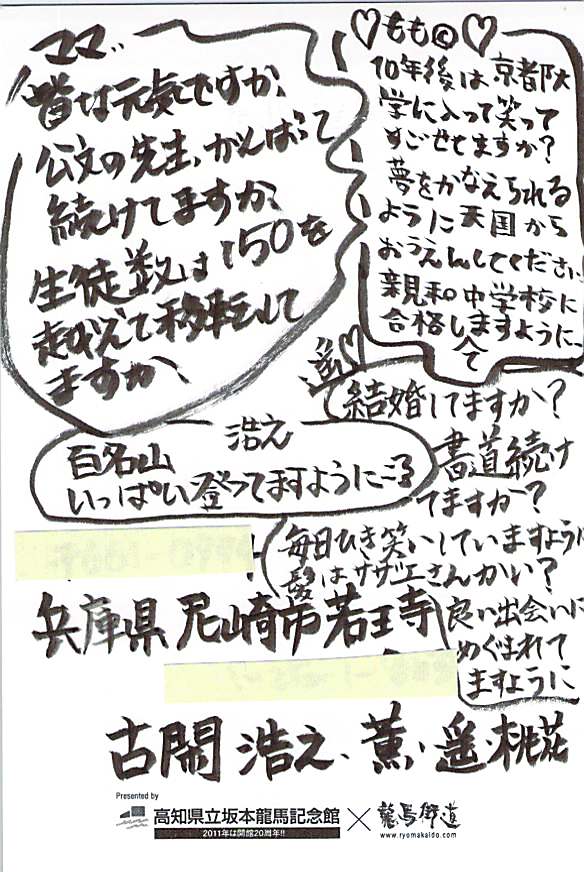 ママ..
皆な元気ですか、
公文の先生、がんばって
続けてますか、
生徒数は150を
越えて移転して
ますか、
♡もも©♡
10年後は京都大
学に入って笑って
すごせてますか?
夢をかなえられる
ように天国から
おうえんしてください
親和中学校に
合格しますように
遥♡
結婚してますか?
書道続け
てますか?
毎日ひき笑いしていますように
髪はサザエさんかい?
良い出会いに
めぐまれて
ますように
浩之
百名山
いっぱい登ってますように
兵庫県尼崎市若王寺
古閑 浩之、薫、遥、桃花
Presented by
高知県立坂本龍馬記念館 × 龍馬街道
2011年は開館20周年!!
www.ryomakaido.com